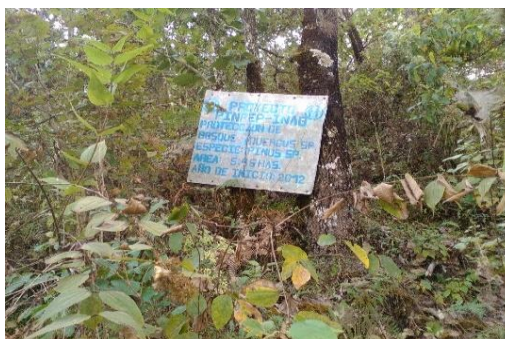 PROYECTO
PINPEP-INAB
PROTECCION DE
BOSQUE QUERCUS SP.
ESPECIE: PINUS SP
AREA 5.45 HAS.
AÑO DE INICIO: 2012